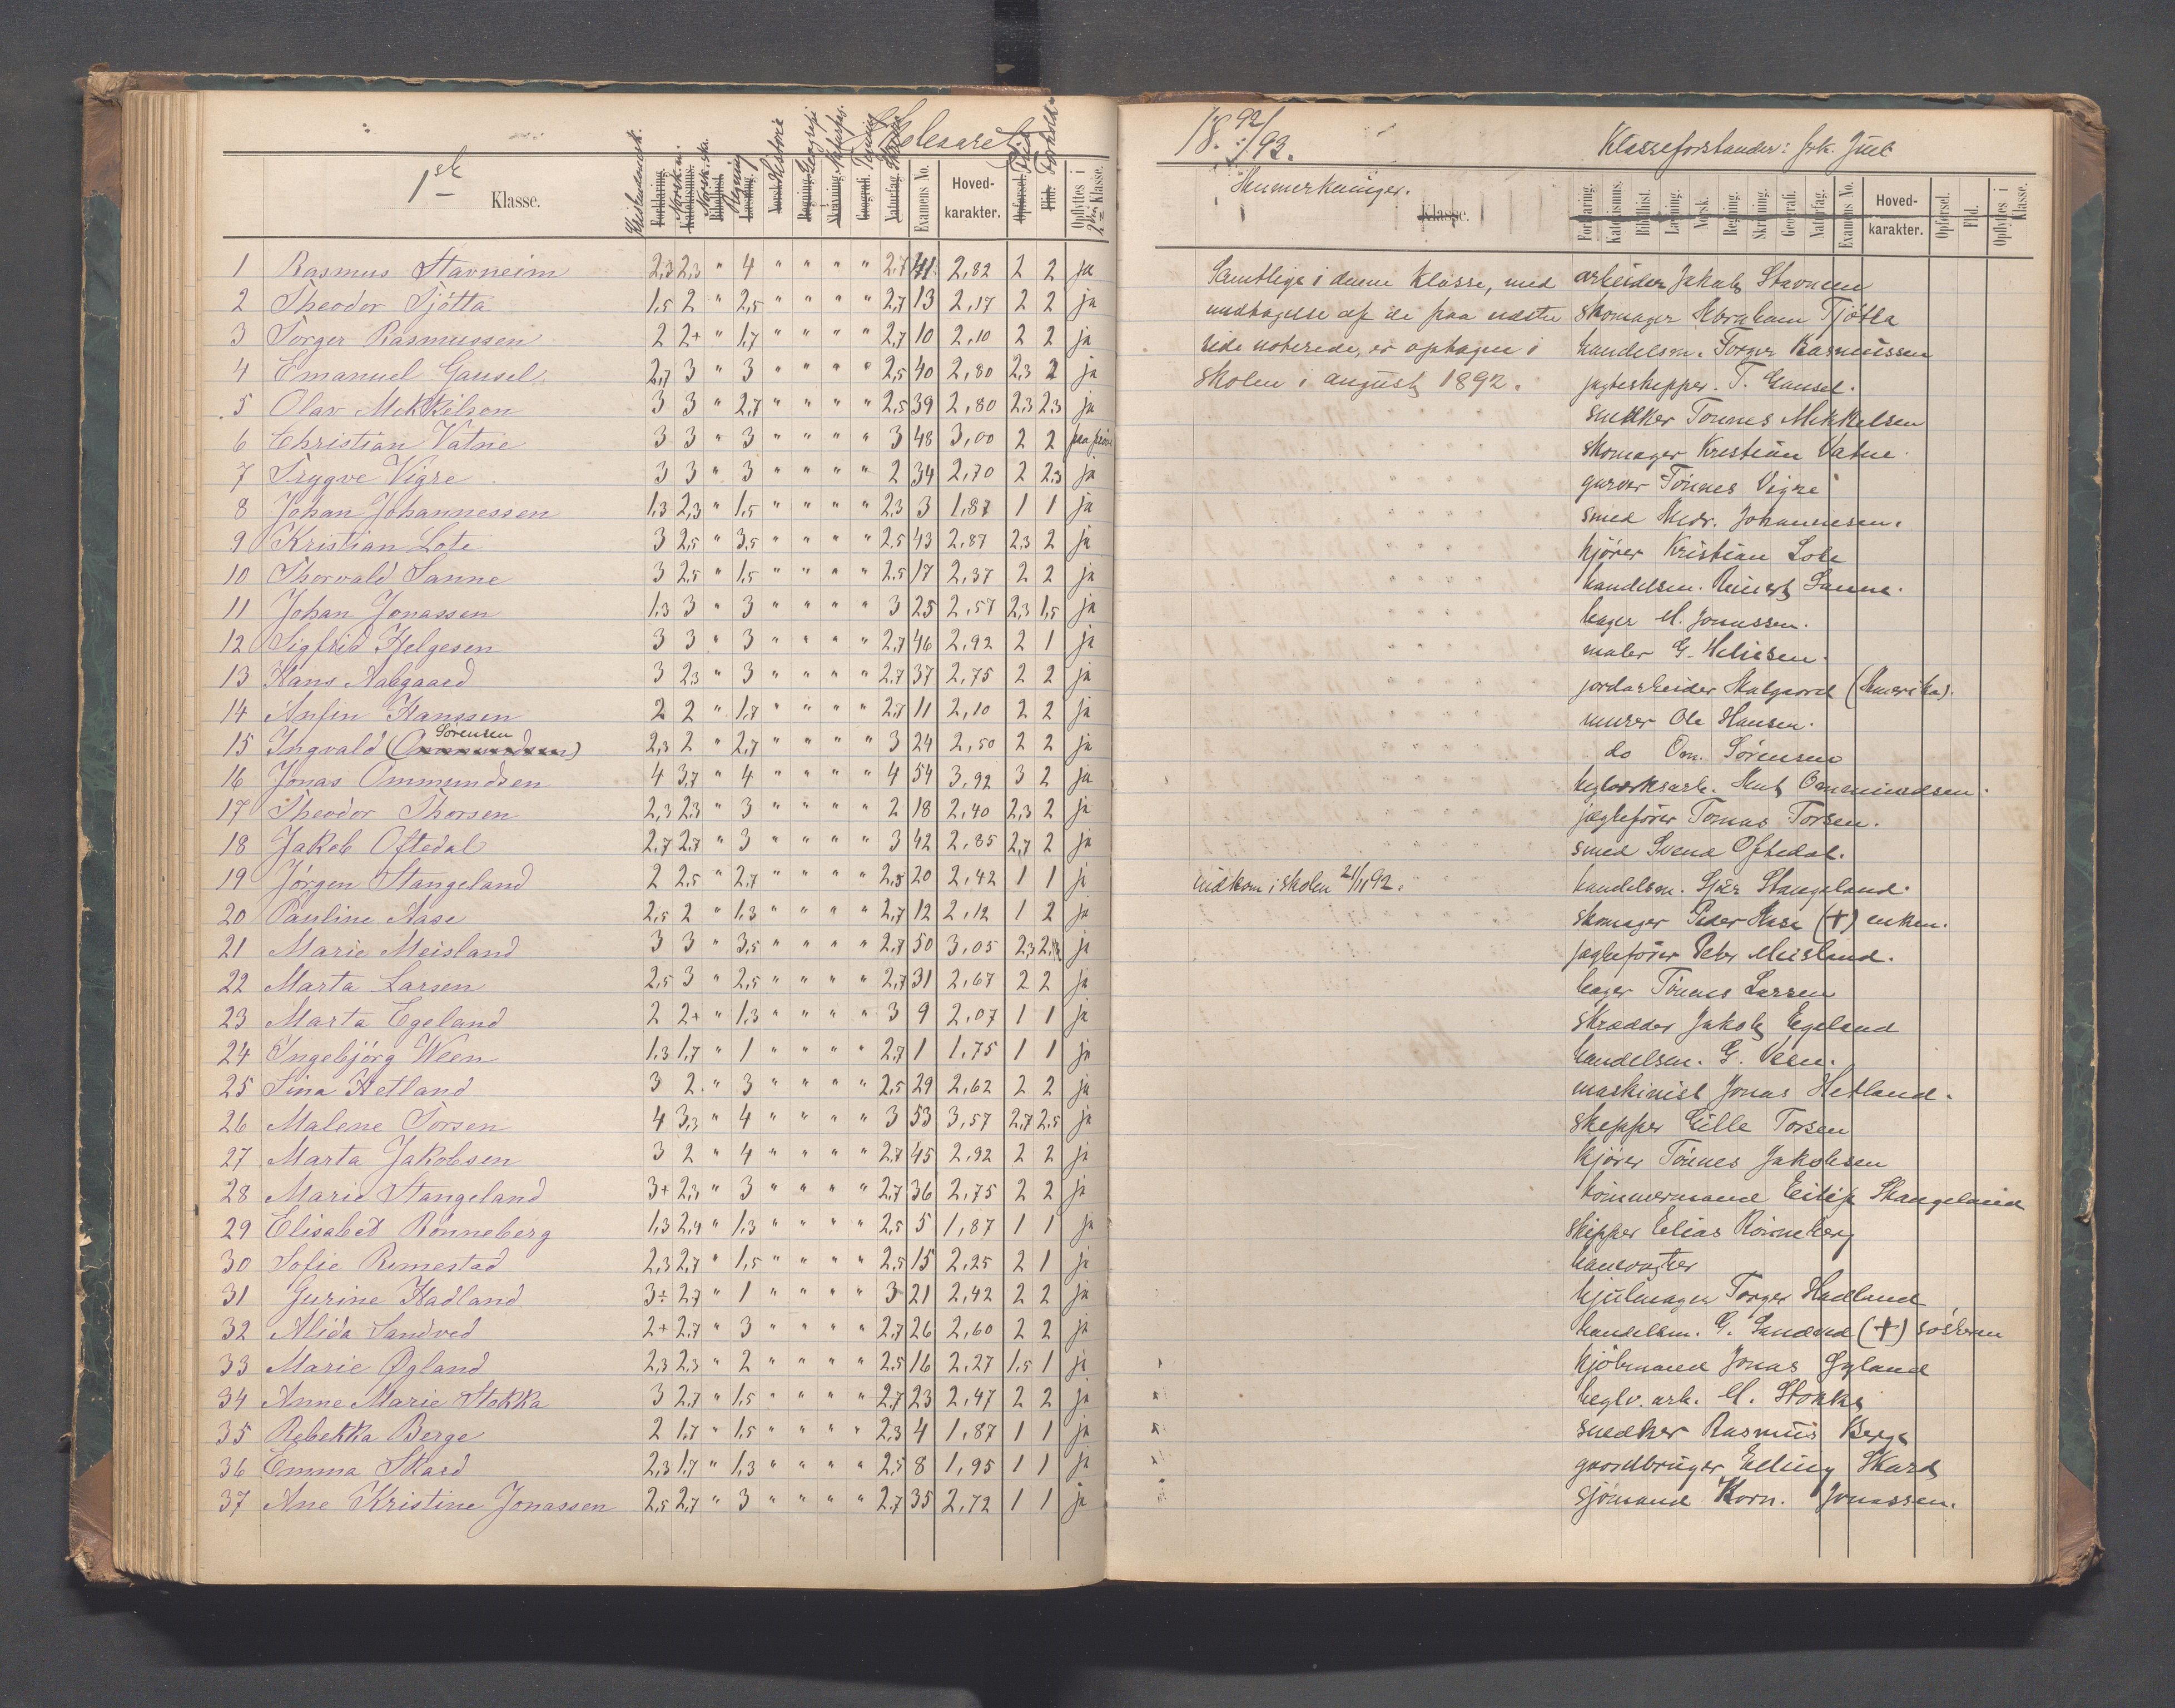 Skoleaaret
1ste Klasse.
Kristendomsk.
Forklaring.
Norsk m.
Katekismus.
Norsk skr.
Bibelhist.
Regning
Læsning.
Historie
Norsk.
Geografi
Regning.
Naturfag.
Skrivning.
Tegning
Geografi.
Naturfag.
Examens No.
Hoved-karakter.
Opførsel.
Flid
Flid.
Forhold
Opflyttes i 2den Klasse.
1 Rasmus Stavneim 2,3 2,3 " 4 " " " " 2,7 41 2,82 2 2 ja
2 Theodor Tjötta 1,5 2 " 2,5 " " " " 2,7 13 2,17 2 2 ja
3 Torger Rasmussen 2 2+ " 1,7 " " " " 2,7 10 2,10 2 2 ja
4 Emanuel Gausel 2,7 3 " 3 " " " " 2,5 40 2,80 2,3 2 ja
5 Olav Mikkelsen 3 3 " 2,7 " " " " 2,5 39 2,80 2,3 2,3 ja
6 Christian Vatne 3 3 " 3 " " " " 3 48 3,00 2 2 paa prøve
7 Trygve Vigre 3 3 " 3 " " " " 2 34 2,70 2 2,3 ja
8 Johan Johannessen 1,3 2,3 " 1,5 " " " " 2,3 3 1,87 1 1 ja
9 Kristian Lote 3 2,5 " 3,5 " " " " 2,5 43 2,87 2,3 2 ja
10 Thorvald Sanne 3 2,5 " 1,5 " " " " 2,5 17 2,37 2 2 ja
11 Johan Jonassen 1,3 3 " 3 " " " " 3 25 2,57 2,3 1,5 ja
12 Sigfrid Helgesen 3 3 " 3 " " " " 2,7 46 2,92 2 1 ja
13 Hans Aalgaard 3 2,3 " 3 " " " " 2,7 37 2,75 2 2 ja
14 Anfin Hanssen 2 2 " 1,7 " " " " 2,7 11 2,10 2 2 ja
Sörensen
15 Ingvald (Ommundsen) 2,3 2 " 2,7 " " " " 3 24 2,50 2 2 ja
16 Jonas Ommundsen 4 3,7 " 4 " " " " 4 54 3,92 3 2 ja
17 Theodor Thorsen 2,3 2,3 " 3 " " " " 2 18 2,40 2,3 2 ja
18 Jakob Oftedal 2,7 2,7 " 3 " " " " 3 42 2,85 2,7 2 ja
19 Jörgen Stangeland 2 2,5 " 2,7 " " " " 2,5 20 2,42 1 1 ja
20 Pauline Aase 2,5 2 " 1,3 " " " " 2,7 12 2,12 1 2 ja
21 Marie Meisland 3 3 " 3,5 " " " " 2,7 50 3,05 2,3 2,3 ja
22 Marta Larsen 2,5 3 " 2,5 " " " " 2,7 31 2,67 2 2 ja
23 Marta Egeland 2 2+ " 1,3 " " " " 3 9 2,07 1 1 ja
24 Ingebjörg Ween 1,3 1,7 " 1 " " " " 2,7 1 1,75 1 1 ja
25 Sina Hetland 3 2 " 3 " " " " 2,5 29 2,62 2 2 ja
26 Malene Torsen 4 3,3 " 4 " " " " 3 53 3,57 2,7 2,5 ja
27 Marta Jakobsen 3 2 " 4 " " " " 2,7 45 2,92 2 2 ja
28 Marie Stangeland 3+ 2,3 " 3 " " " " 2,7 36 2,75 2 2 ja
29 Elisabet Rönneberg 1,3 2,4 " 1,3 " " " " 2,5 5 1,87 1 1 ja
30 Sofie Rimestad 2,3 2,7 " 1,5 " " " " 2,5 15 2,25 2 1 ja
31 Gurine Hadland 3÷ 2,7 " 1 " " " " 3 21 2,42 2 2 ja
32 Alida Sandved 2+ 2,7 " 3 " " " " 2,7 26 2,60 2 2 ja
33 Marie Øgland 2,3 2,3 " 2 " " " " 2,5 16 2,27 1,5 1 ja
34 Anne Marie Stokka 3 2,7 " 1,5 " " " " 2,7 23 2,47 2 2 ja
35 Rebekka Berge 2 1,7 " 1,5 " " " " 2,3 4 1,87 1 1 ja
36 Emma Skard 2,3 1,7 " 1,3 " " " " 2,5 8 1,95 1 1 ja
37 Ane Kristine Jonassen 2,5 2,7 " 3 " " " " 2,7 35 2,72 1 1 ja
1892/93.
Klasseforstander: frk. Juel
Anmerkninger.
Klasse.
Forklaring.
Katekismus.
Bibelhist.
Læsning.
Norsk.
Regning.
Skrivning.
Geografi.
Naturfag.
Examens No.
Hoved-karakter.
Opførsel.
Flid.
Opflyttes i Klasse.
Samtlige i denne klasse, med
undtagelse af de paa nedste
side noterede, er optagen i
skolen i august 1892.
arbeider Jakob Stavneim
skomager Abraham Tjötta
handelsm. Torger Rasmussen
jagteskipper. T. Gausel.
snekker Tönnes Mikkelsen
skomager Kristian Vatne.
garver Tönnes Vigre
smed Andr. Johannesen.
kjörer Kristian Lote
handelsm. Reinert Sanne.
bager M. Jonassen.
maler G. Helgesen.
jordarbeider Aalgaard (Amerika).
murer Ole Hansen.
do Om. Sörensen
teglverksarb. Knut Ommundsen.
jægtefører Tomas Torsen.
smed Svend Oftedal.
indkom i skolen 21/11 92. handelsm. Sjur Stangeland.
skomager Peder Aase (+) enken.
jægtefører Peter Meisland.
bager Tönnes Larsen
skrædder Jakob Egeland
handelsm. G. Veen.
maskinist Jonas Hetland.
skipper Gille Torsen
kjörer Tönnes Jakobsen
tömmermand Eilif Stangeland
skipper Elias Rönneberg
banevogter
hjulmager Torger Hadland
handelsm. G. Sandved (+) søsteren
kjöbmand Jonas Øgland
teglv. arb. M. Stokka
snedker Rasmus Berge
gaardbruger Elling Skard
sjömand Korn. Jonassen.